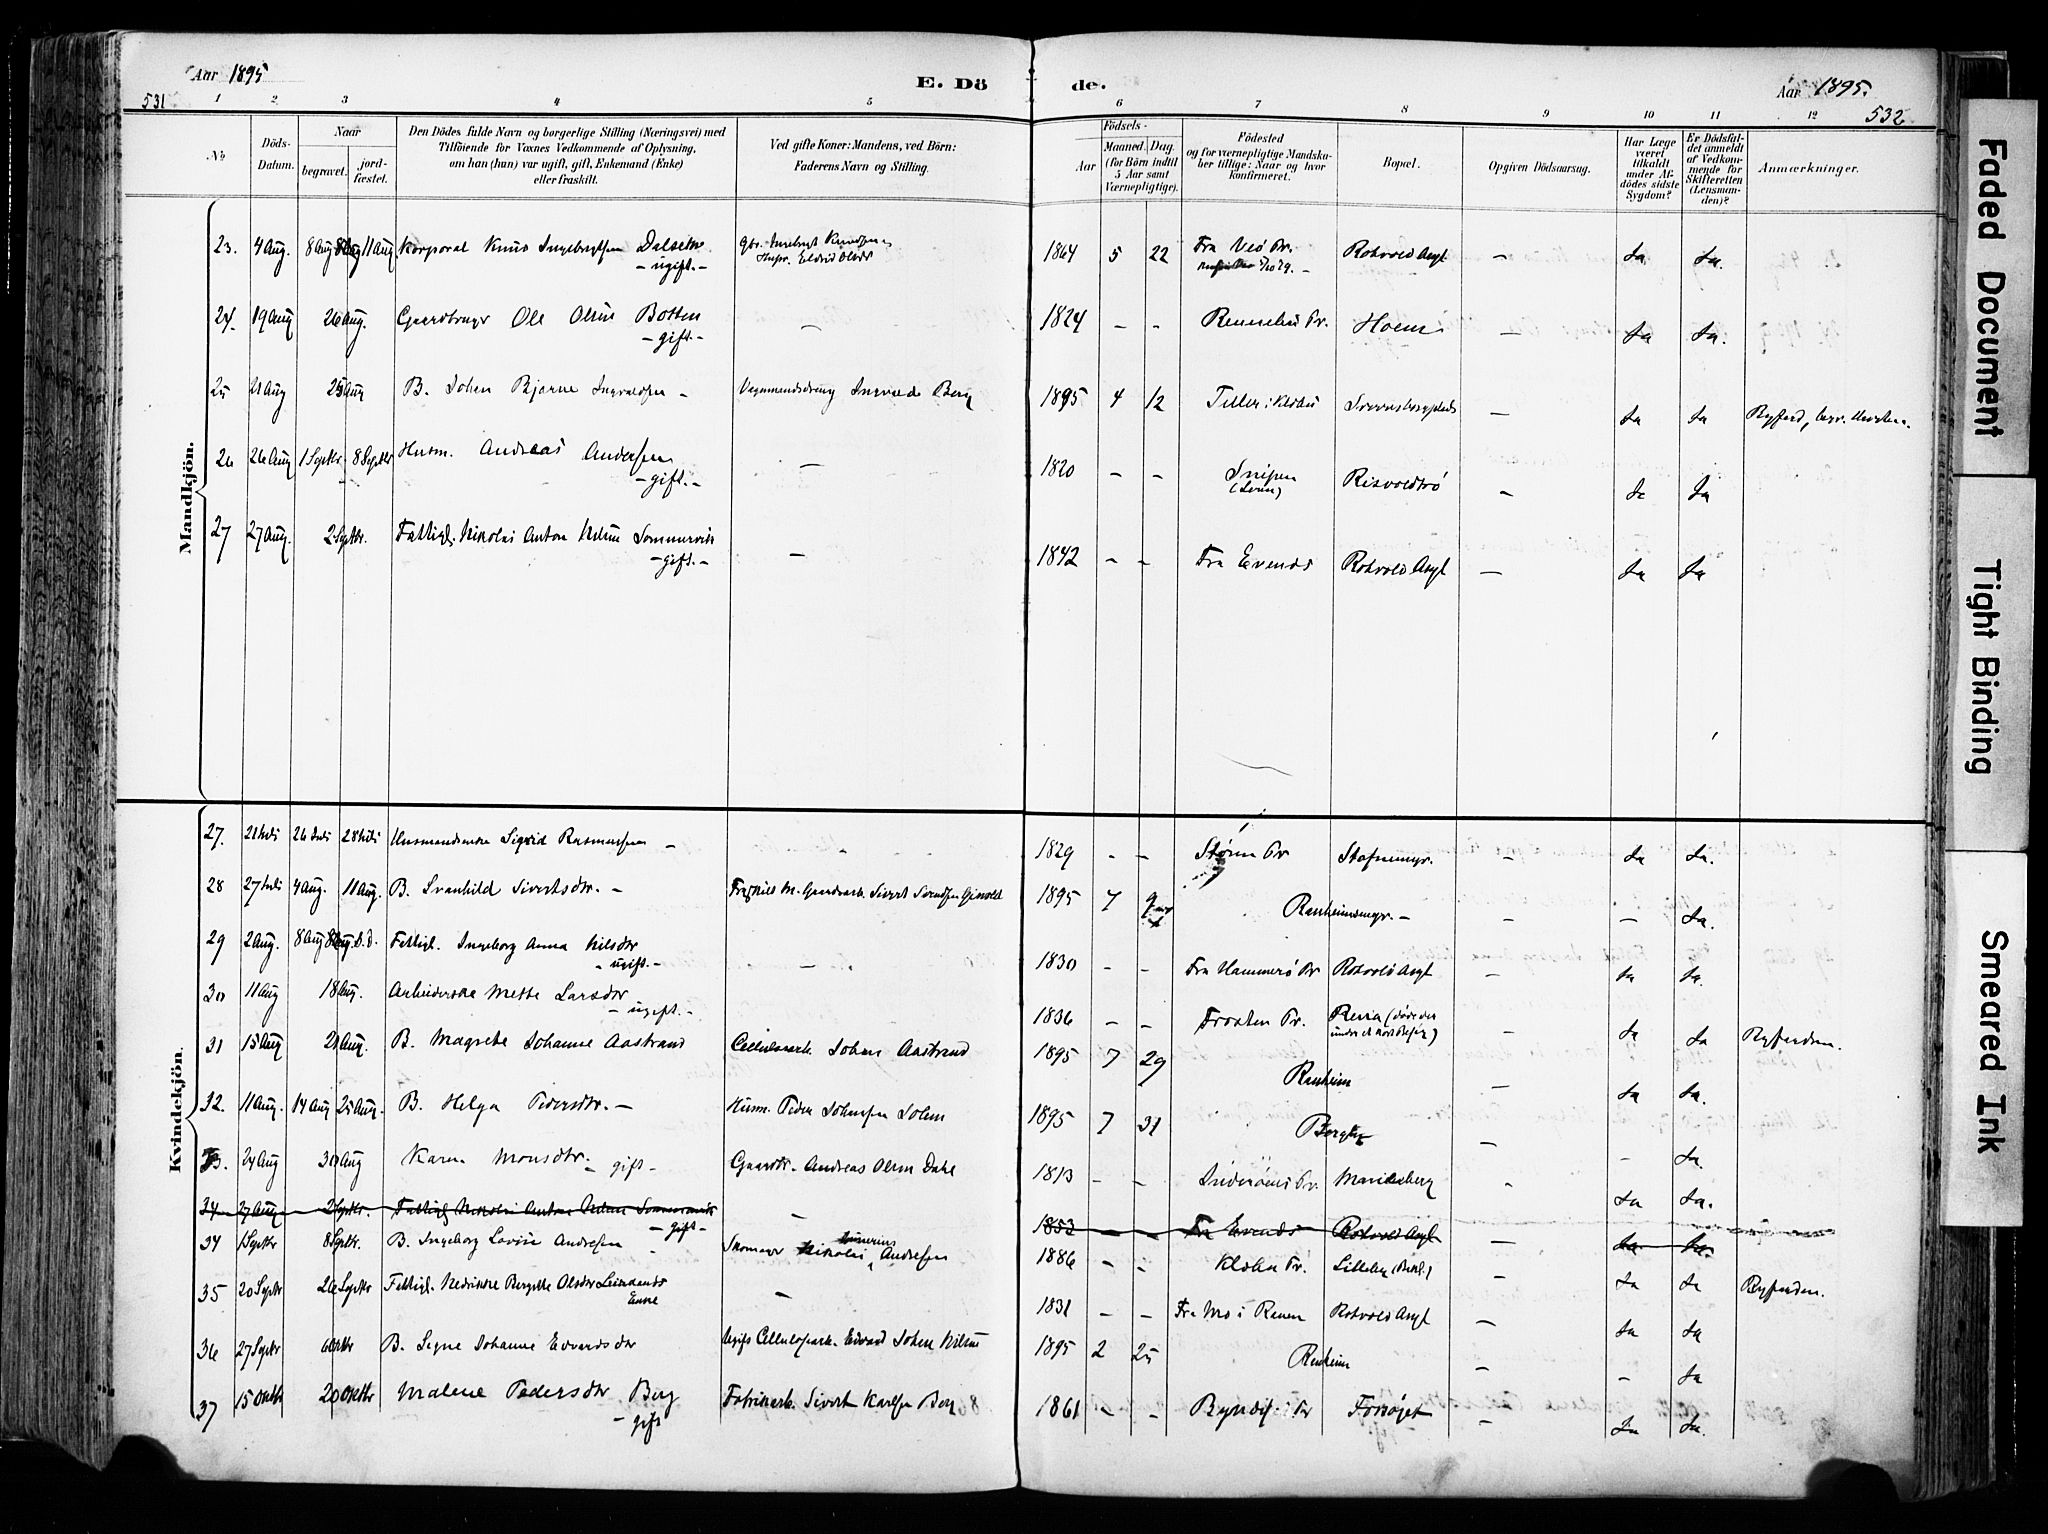 Aar 1895
E. Dö de.
Aar 1895.
531
532
1 2 3 4 5 6 7 8 9 10 11 12
No
Döds-Datum.
Naar
begravet.
jord-fæstet.
Den Dödes fulde Navn og borgerlige Stilling (Næringsvei) med
Tilföiende for Voxnes Vedkommende af Oplysning,
om han (hun) var ugift, gift, Enkemand (Enke)
eller fraskilt.
Ved gifte Koner: Mandens, ved Börn:
Faderens Navn og Stilling.
Födsels-
Aar
Maaned. (for Börn indtil 5 Aar samt Værnepligtige).
Dag.
Födested
og for værnepligtige Mandska-
ber tillige: Naar og hvor
konfirmeret.
Bopæl.
Opgiven Dödsaarsag.
Har Læge været tilkaldt under Af-dödes sidste Sygdom?
Er Dödsfal-det anmeldt af Vedkom-mende for Skifteretten (Lensman-den)?
Anmærkninger.
Mandkjön.
23. 4 Aug. 8 Aug 11 Aug Korporal Knud Ingebrigtsen Dalseth 1864 5 22 Fra Veö Pr. Rotvold Asyl – Ja Ja.
– ugift. –
24. 19 Aug 26 Aug. Gaardbruger Ole Olsen Botten – 1824 – – Rennebu Pr. Hoem – Ja Ja.
– gift. –
25 21 Aug 25 Aug B. Johan Bjarne Ingvaldsen – Ingvald Berg 1895 4 12 Tiller i Klæbu – Ja Ja
26 26 Aug 1 Septbr 8 Septbr Husm. Andreas Andersen – 1820 – – Risvoldtrö – Ja Ja
– gift. –
27 27 Aug. 2 Septbr. Fattigl. Nikolai Anton Nilsen Sommervik – 1842 – – Fra Evends Rotvold Asyl – Ja Ja
– gift. –
Kvindekjön.
27. 21 Juli 26 Juli 28 Juli Husmandsenke Sigrid Rasmussen – 1829 – – Stören Pr Stafnemyr. – Ja Ja.
28 27 Juli 4 Aug. 11 Aug. B. Svanhild Sivertsdtr. – 1895 7 Ranheimsmyr. – – – Ja.
29 2 Aug. 8 Aug S.D. Fattigl. Ingeborg Anna Nilsdtr – 1830 – – Fra Hammerö Pr Rotvold Asyl – Ja Ja.
– ugift. –
30 11 Aug 18 Aug. Arbeiderske Mette Larsdtr 1836 – – Frosten Pr. – Ja Ja Byfarden.
– ugift. –
31 15 Aug 21 Aug. B. Magrete Johanne Aastrand Cellulosearb. Johan Aastrand 1895 7 29 Ranheim – Ja Ja.
32. 11 Aug. 14 Aug 25 Aug. B. Helga Pedersdtr. – Husm. Peder Johansen Solem 1895 7 31 – – Ja.
33. 24 Aug 30 Aug Karen Monsdtr. – gift – Gaardbr. Andreas Olsen Dahl 1813 – – Inderöens Pr. Marienberg – Ja Ja.
34 27 Aug 2 Septbr. Fattigl. Nikolai Anton Nilsen Sommervik – 1853 – – Fra Evends Rotvold Asyl – Ja. Ja.
– gift –
34 1 Septbr 8 Septbr. B. Ingeborg Lovise Andresen – Skomager Nikolai Andresen 1886 – – Klæbu Pr. – Ja Ja Byfarden.
35 20 Septbr 26 Septbr – 1831 – – Fra Mo i Ranen Rotvold Asyl – Ja Ja
Enke
36 27 Septbr 6 Oktbr B. Signe Johanne Edvardsdtr Ugift Cellulosearb. Edvard Johan Nilsen 1895 2 25 Ranheim – – Ja
37 15 Oktbr 20 Oktbr Malene Pedersdtr Berg Fabrikarb. Sivert Karlsen Berg 1861 – – Forsöget – Ja Ja.
– gift
Faded Document
Tight Binding
Smeared Ink